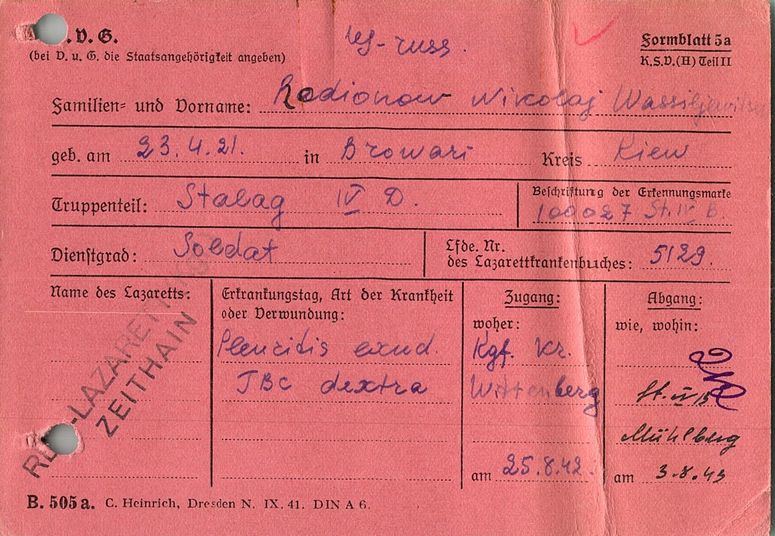 V. G.
(bei D. u. G. die Staatsangehörigkeit angeben)
russ.
Formblatt 5a
K.S.V.(H) Teil II
Familien- und Vorname: Rodionow Nikolaj Wassiljewitsch
geb. am 23.4.21. in Browari Kreis Kiew
Truppenteil: Stalag IV D.
Beschriftung der Erkennungsmarke
100027 St. IV B.
Dienstgrad: Soldat
Lfde. Nr.
des Lazarettkrankenbuches: 5129.
Name des Lazaretts:
LAZARETT
ZEITHAIN
Erkrankungstag, Art der Krankheit
oder Verwundung:
Pleuritis exud.
TBC dextra
Zugang:
woher:
Kgf. Kr.
Wittenberg
am 25.8.42.
Abgang:
wie, wohin:
St. IV B
Mühlberg
am 3.8.43
B. 505a. C. Heinrich, Dresden N. IX. 41. DIN A 6.